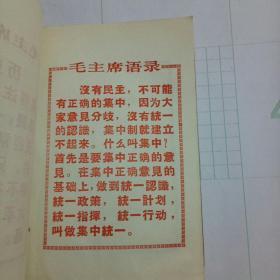 毛主席语录
沒有民主，不可能
有正确的集中，因为大
家意見分歧，沒有統一
的認識，集中制就建立
不起来。什么叫集中？
首先是要集中正确的意
見。在集中正确意見的
基础上，做到統一認識，
統一政策，統一計划，
統一指揮，統一行动，
叫做集中統一。